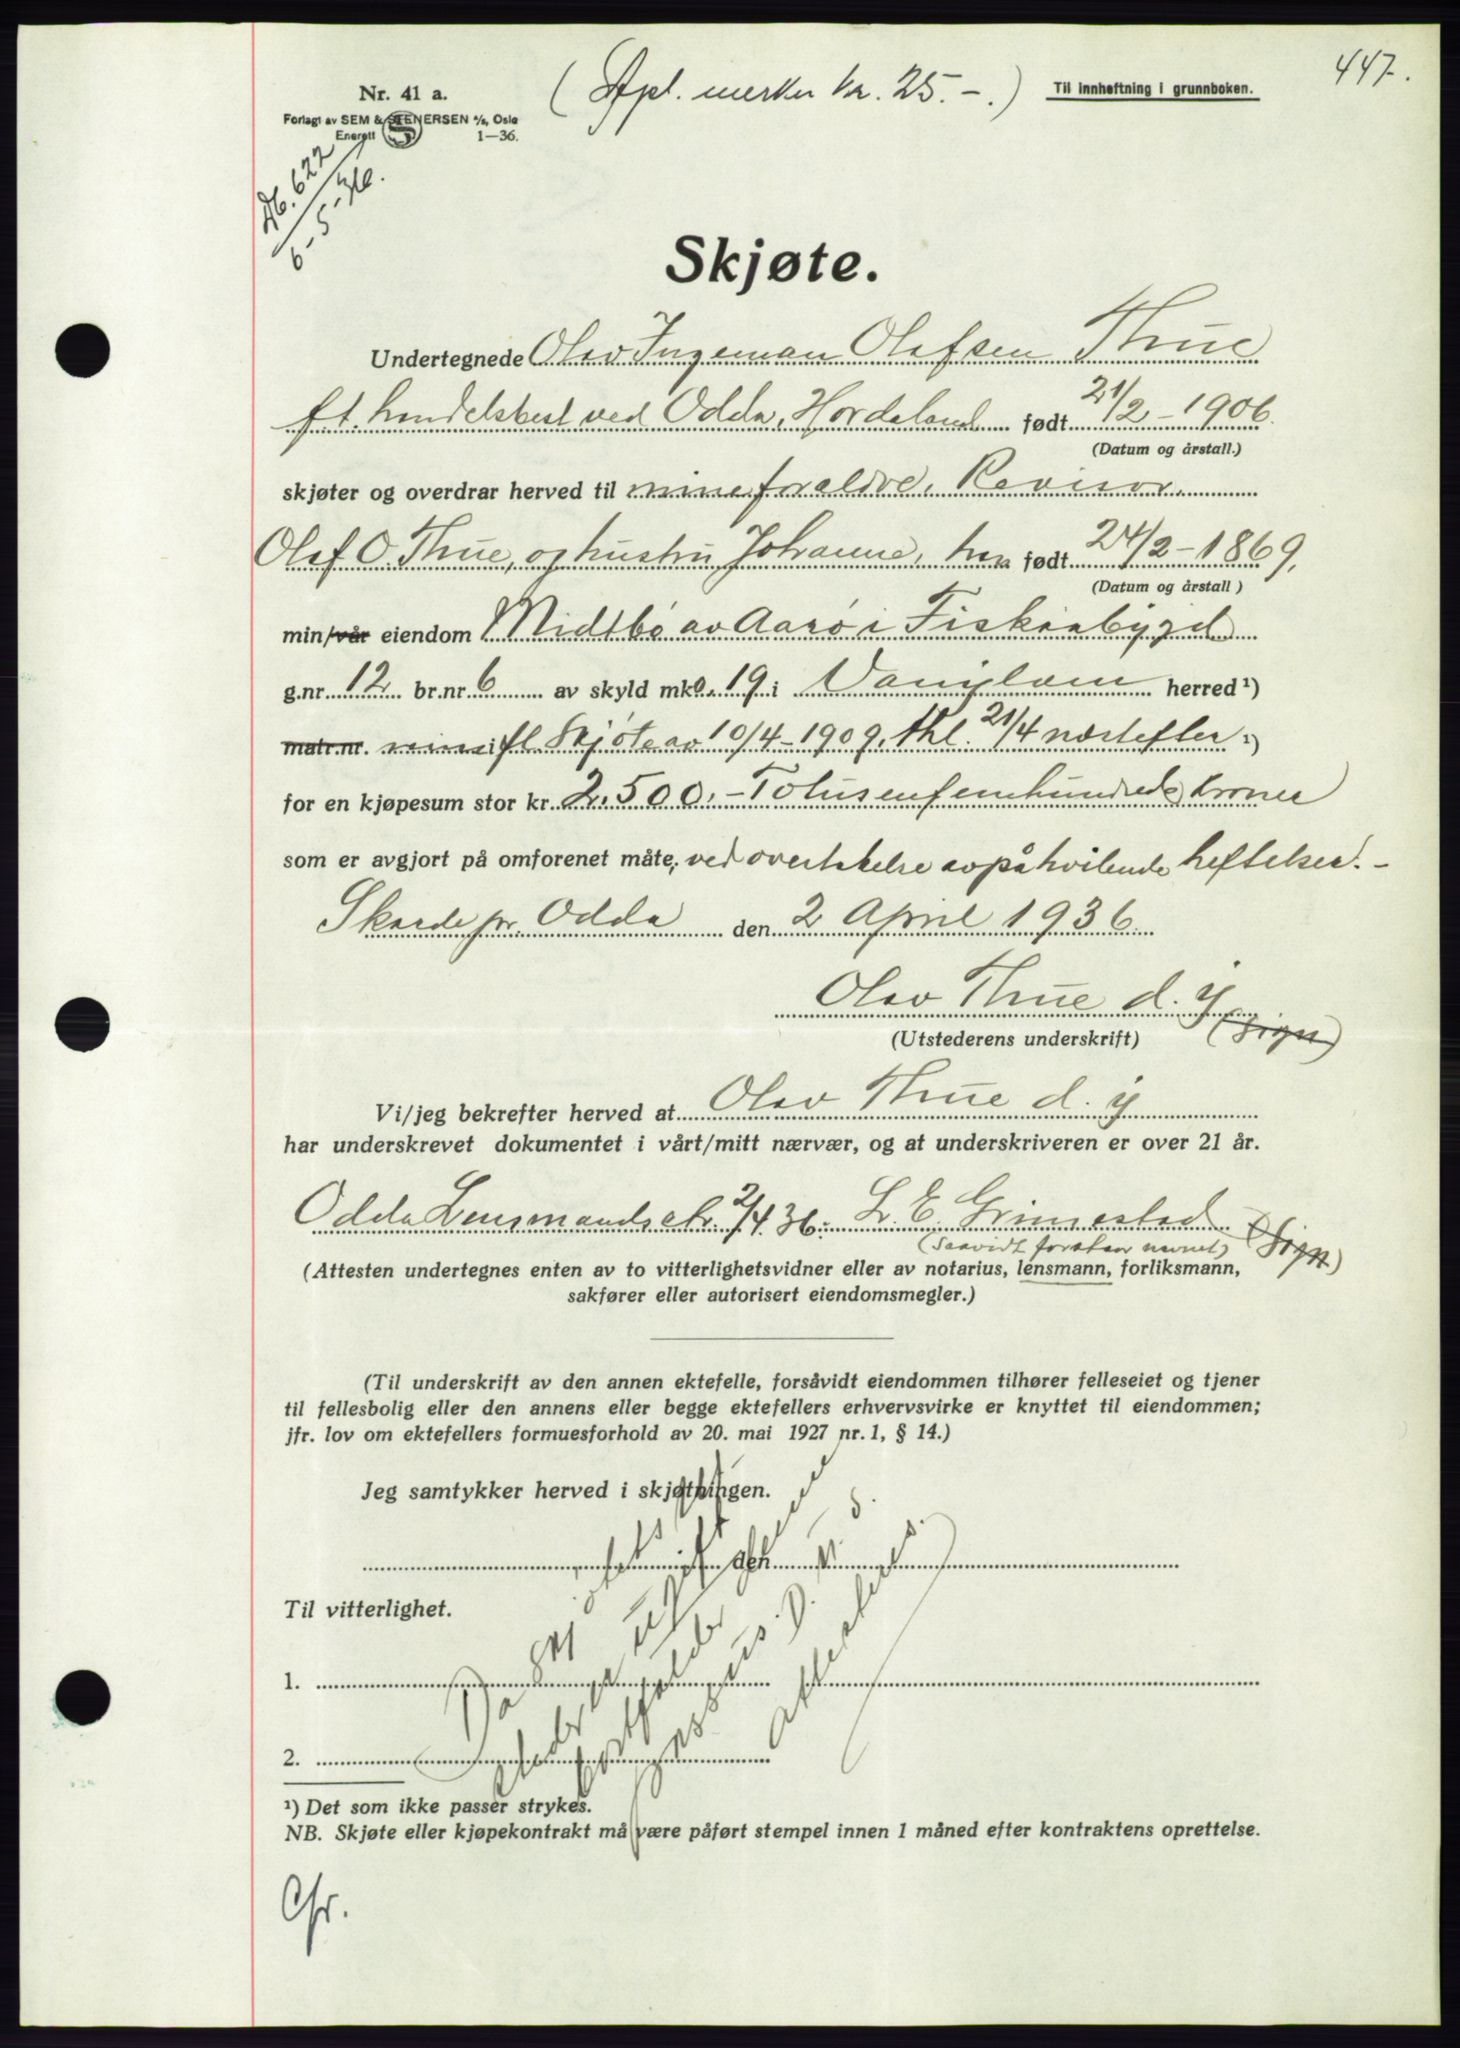 447.
(Stpl. merker kr. 25.-.)
Til innheftning i grunnboken.
Nr. 41 a.
Forlagt av SEM & STENERSEN A/S, Oslo
Enerett 1—36.
Db. 622
6-5-36.
Skjøte.
Undertegnede Olav Ingeman Olafsen Thue
f.t. handelsbest ved Odda, Hordaland født 21/2-1906.
(Datum og årstall.)
skjøter og overdrar herved til mine foreldre, Revisor,
Olaf O. Thue, og hustru Johanne, han født 24/2-1869,
(Datum og årstall)
min/vår eiendom Midtbö av Aarö i Fiskåabygd
g.nr. 12 br.nr. 6 av skyld mk 0.19 i Vanylven herred¹)
matr.nr. i fl. Skjöte av 10/4-1909, thl. 21/4 næstefter ¹)
for en kjøpesum stor kr. 2.500.- Totusenfemhundrede kroner
som er avgjort på omforenet måte, ved overtakelse av påhvilende heftelser.-
Skarde pr. Odda den 2 April 1936.
Olav Thue d. y
(Utstederens underskrift) (sign)
Vi/jeg bekrefter herved at Olav Thue d. y
har underskrevet dokumentet i vårt/mitt nærvær, og at underskriveren er over 21 år.
Odda Lensmandsktr. 2/4.36. L. E. Grimestad
(saavidt forstaar navnet) (Sign)
(Attesten undertegnes enten av to vitterlighetsvidner eller av notarius, lensmann, forliksmann,
sakfører eller autorisert eiendomsmegler.)
(Til underskrift av den annen ektefelle, forsåvidt eiendommen tilhører felleseiet og tjener
til fellesbolig eller den annens eller begge ektefellers erhvervsvirke er knyttet til eiendommen;
jfr. lov om ektefellers formuesforhold av 20. mai 1927 nr. 1, § 14.)
Jeg samtykker herved i skjøtningen.
den
Til vitterlighet.
1.
2.
Da skjötets ut-
steder er ugift
bortfalder denne
D. S.
Attesteres.
¹) Det som ikke passer strykes.
NB. Skjøte eller kjøpekontrakt må være påført stempel innen 1 måned efter kontraktens oprettelse.